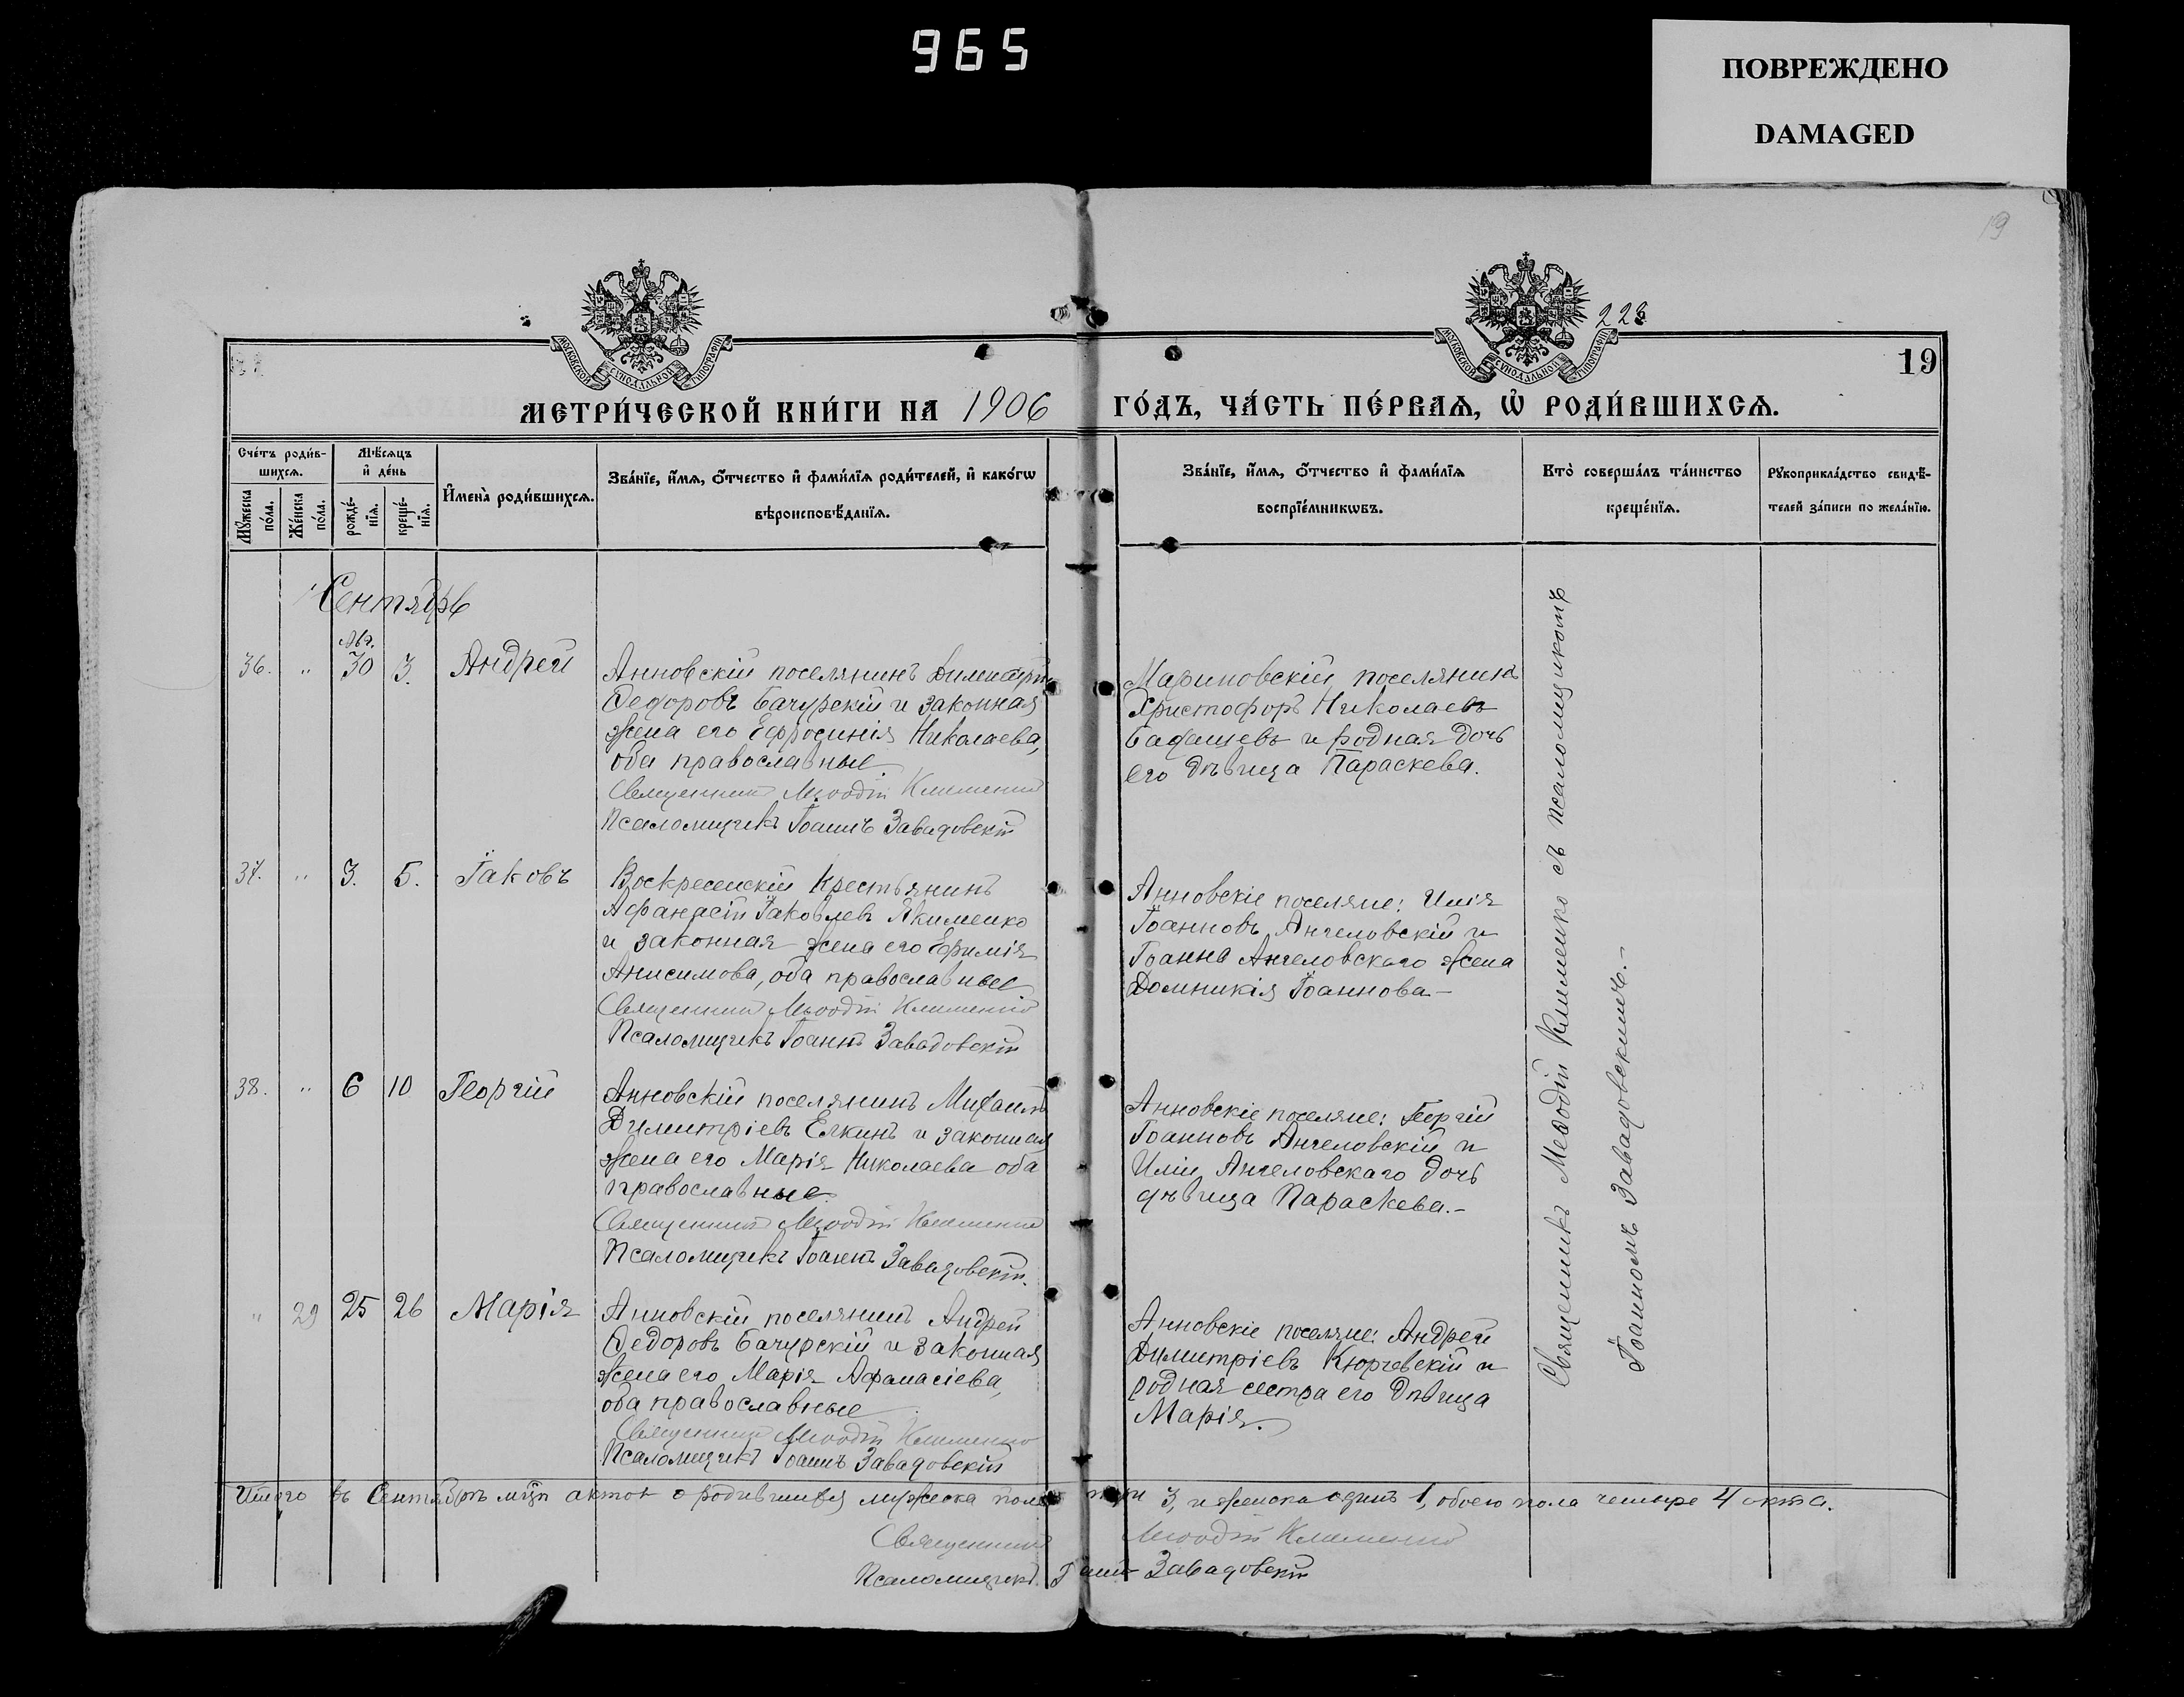 965
ПОВРЕЖДЕНО
DAMAGED
19
228
МОСКОВСКОЙ СѴНОДАЛЬНОЙ ТИПОГРАФІИ
МОСКОВСКОЙ СѴНОДАЛЬНОЙ ТИПОГРАФІИ
19
МЕТРИ́ЧЕСКОЙ КНИ́ГИ НА 1906 ГО́ДЪ, ЧА́СТЬ ПЕ́РВАѦ, Ѡ҆ РОДИ́ВШИХСѦ.
Сче́тъ роди́в-
шихсѧ.
Мѣ́сѧцъ
и҆ де́нь
Мꙋ́жеска
по́ла.
Же́нска
по́ла.
рожде́-
нїѧ.
креще́-
нїѧ.
И҆мена̀ роди́вшихсѧ.
Зва́нїе, и҆́мѧ, ѻ҆́тчество и҆ фами́лїѧ роди́телей, и҆ како́гѡ
вѣроисповѣ́данїѧ.
Зва́нїе, и҆́мѧ, ѻ҆́тчество и҆ фами́лїѧ
воспрїе́мникѡвъ.
Кто̀ соверша́лъ та́инство
креще́нїѧ.
Рꙋкоприкла́дство свидѣ́-
телей за́писи по жела́нїю.
Сентябрь
Авг.
36. " 30 3. Андрей
Анновскій поселянинъ Димитрій
Ѳедоровъ Бачурскій и законная
жена его Ефросинія Николаева,
оба православные.
Священникъ Меѳодій Клименко
Псаломщикъ Іоаннъ Завадовскій
Мариновскій поселянинъ
Христофоръ Николаевъ
и родная дочь
его дѣвица Параскева.
37. " 3. 5. Іаковъ
Воскресенскій крестьянинъ
Афанасій Іаковлевъ Якименко
и законная жена его Ефимія
Анисимова, оба православные
Священникъ Меѳодій Клименко
Псаломщикъ Іоаннъ Завадовскій
Анновскіе поселяне: Илія
Іоанновъ Ангеловскій и
Іоанна Ангеловскаго жена
Домникія Іоаннова.—
38. " 6 10 Георгій
Анновскій поселянинъ Михаилъ
Димитріевъ Елкинъ и законная
жена его Марія Николаева оба
православные.
Священникъ Меѳодій Клименко
Псаломщикъ Іоаннъ Завадовскій.
Анновскіе поселяне: Георгій
Іоанновъ Ангеловскій и
Иліи Ангеловскаго дочь
дѣвица Параскева.—
" 29 25 26 Марія
Анновскій поселянинъ Андрей
Ѳедоровъ Бачурскій и законная
жена его Марія Афанасіева,
оба православные
Священникъ Меѳодій Клименко
Псаломщикъ Іоаннъ Завадовскій
Анновскіе поселяне: Андрей
Димитріевъ Кюрчевскій и
родная сестра его дѣвица
Марія.
Священникъ Меѳодій Клименко съ псаломщикомъ
Іоанномъ Завадовскимъ.—
Итого въ Сентябрѣ мцѣ актовъ о родившихся мужеска пола три 3, и женска одинъ 1, обоего пола четыре 4 акта.
Священникъ Меѳодій Клименко
Псаломщикъ Іоаннъ Завадовскій